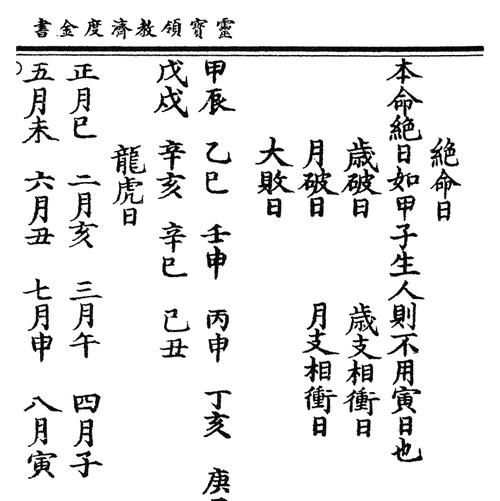 靈寶領教濟度金書
絶命日
本命絶日如甲子生人則不用寅日也
歳破日 歳支相衝日
月破日 月支相衝日
大敗日
甲辰 乙巳 壬申 丙申 丁亥 庚
戊戌 辛亥 辛巳 己丑
龍虎日
正月巳 二月亥 三月午 四月子
五月未 六月丑 七月申 八月寅